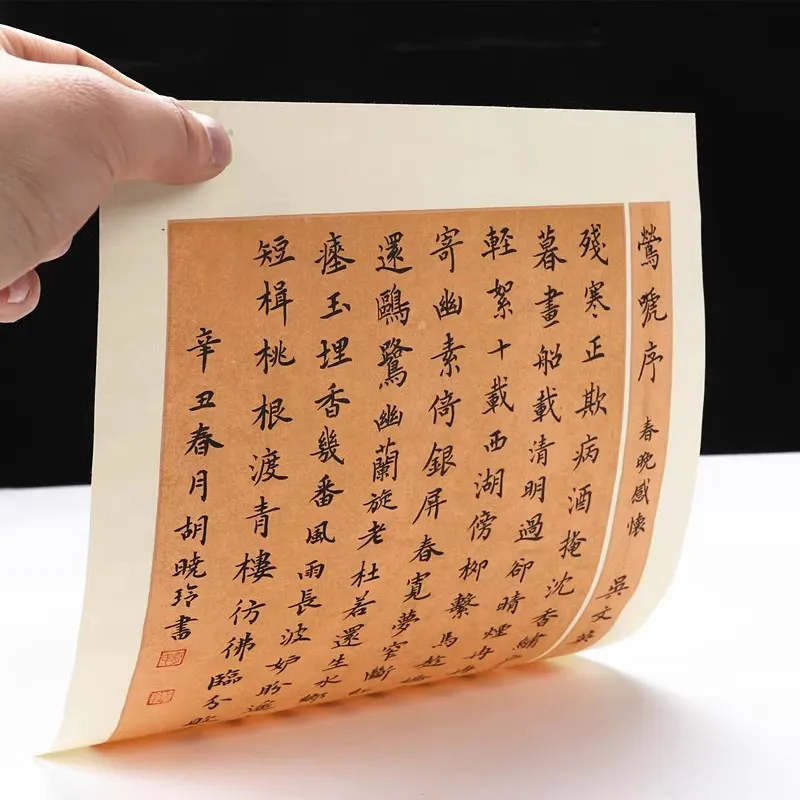 鶯嗁序 春晚感懷 吳文英
殘寒正欺病酒掩沈香繡
暮畫船載清明過卻晴煙冉
軽絮十載西湖傍柳繫馬趁
寄幽素倚銀屏春寬夢窄斷
還鷗鷺幽蘭旋老杜若還生水
瘞玉埋香幾番風雨長波妒盼遙
短楫桃根渡青樓仿彿臨分
辛丑春月胡曉玲書